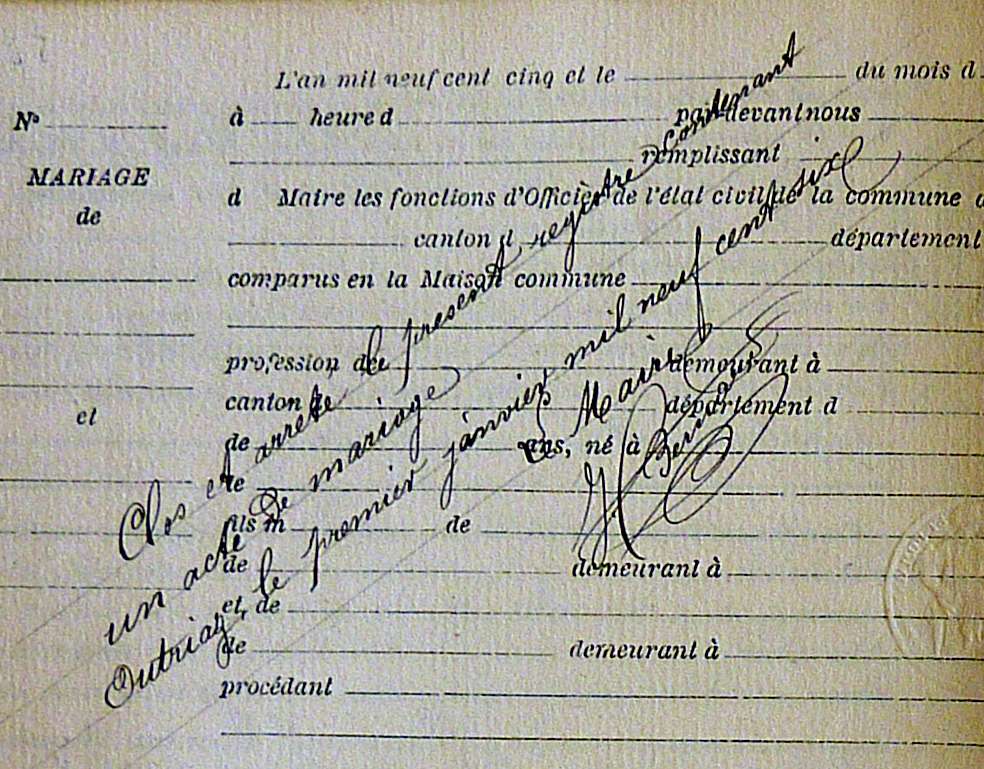 L'an mil neuf cent cinq et le du mois d
N° à heure d par devant nous
remplissant
MARIAGE
de
d Maire les fonctions d'Officier de l'état civil de la commune d
canton d département
comparus en la Maison commune
profession de demeurant à
et
canton d département d
de ans, né à
le
fils m de
de demeurant à
et de
de demeurant à
procédant
Clos et arrêté le présent registre contenant
un acte de mariage
Outriaz, le premier janvier mil neuf cent six
Le Maire